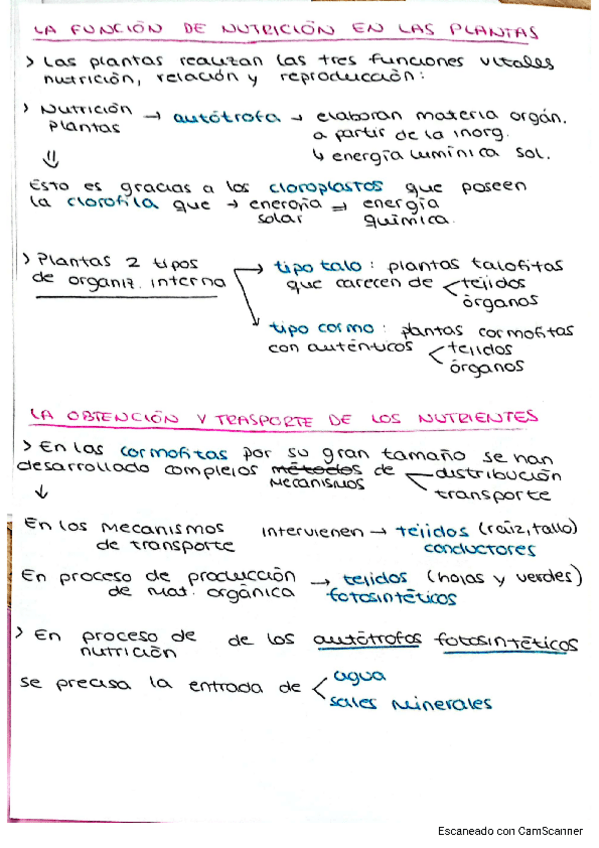 LA FUNCIÓN DE NUTRICIÓN EN LAS PLANTAS
> Las plantas realizan las tres funciones vitales
nutrición, relación y reproducción:
> Nutrición plantas → autótrofa → elaboran materia orgán.
a partir de la inorg.
↳ energía lumínica sol.
⇓
Esto es gracias a los cloroplastos que poseen
la clorofila que → energía solar → energía química.
> Plantas 2 tipos de organiz. interna
→ tipo talo: plantas talofitas
que carecen de < tejidos
órganos
→ tipo cormo: plantas cormofitas
con auténticos < tejidos
órganos
LA OBTENCIÓN Y TRASPORTE DE LOS NUTRIENTES
> En las cormofitas por su gran tamaño se han
desarrollado complejos métodos de < distribución
MECANISMOS
transporte
↓
En los MECANISMOS de transporte intervienen → tejidos (raíz, tallo)
conductores
En proceso de producción de mat. orgánica → tejidos (hojas y verdes)
fotosintéticos
> En proceso de nutrición de los autótrofos fotosintéticos
se precisa la entrada de < agua
sales minerales
Escaneado con CamScanner